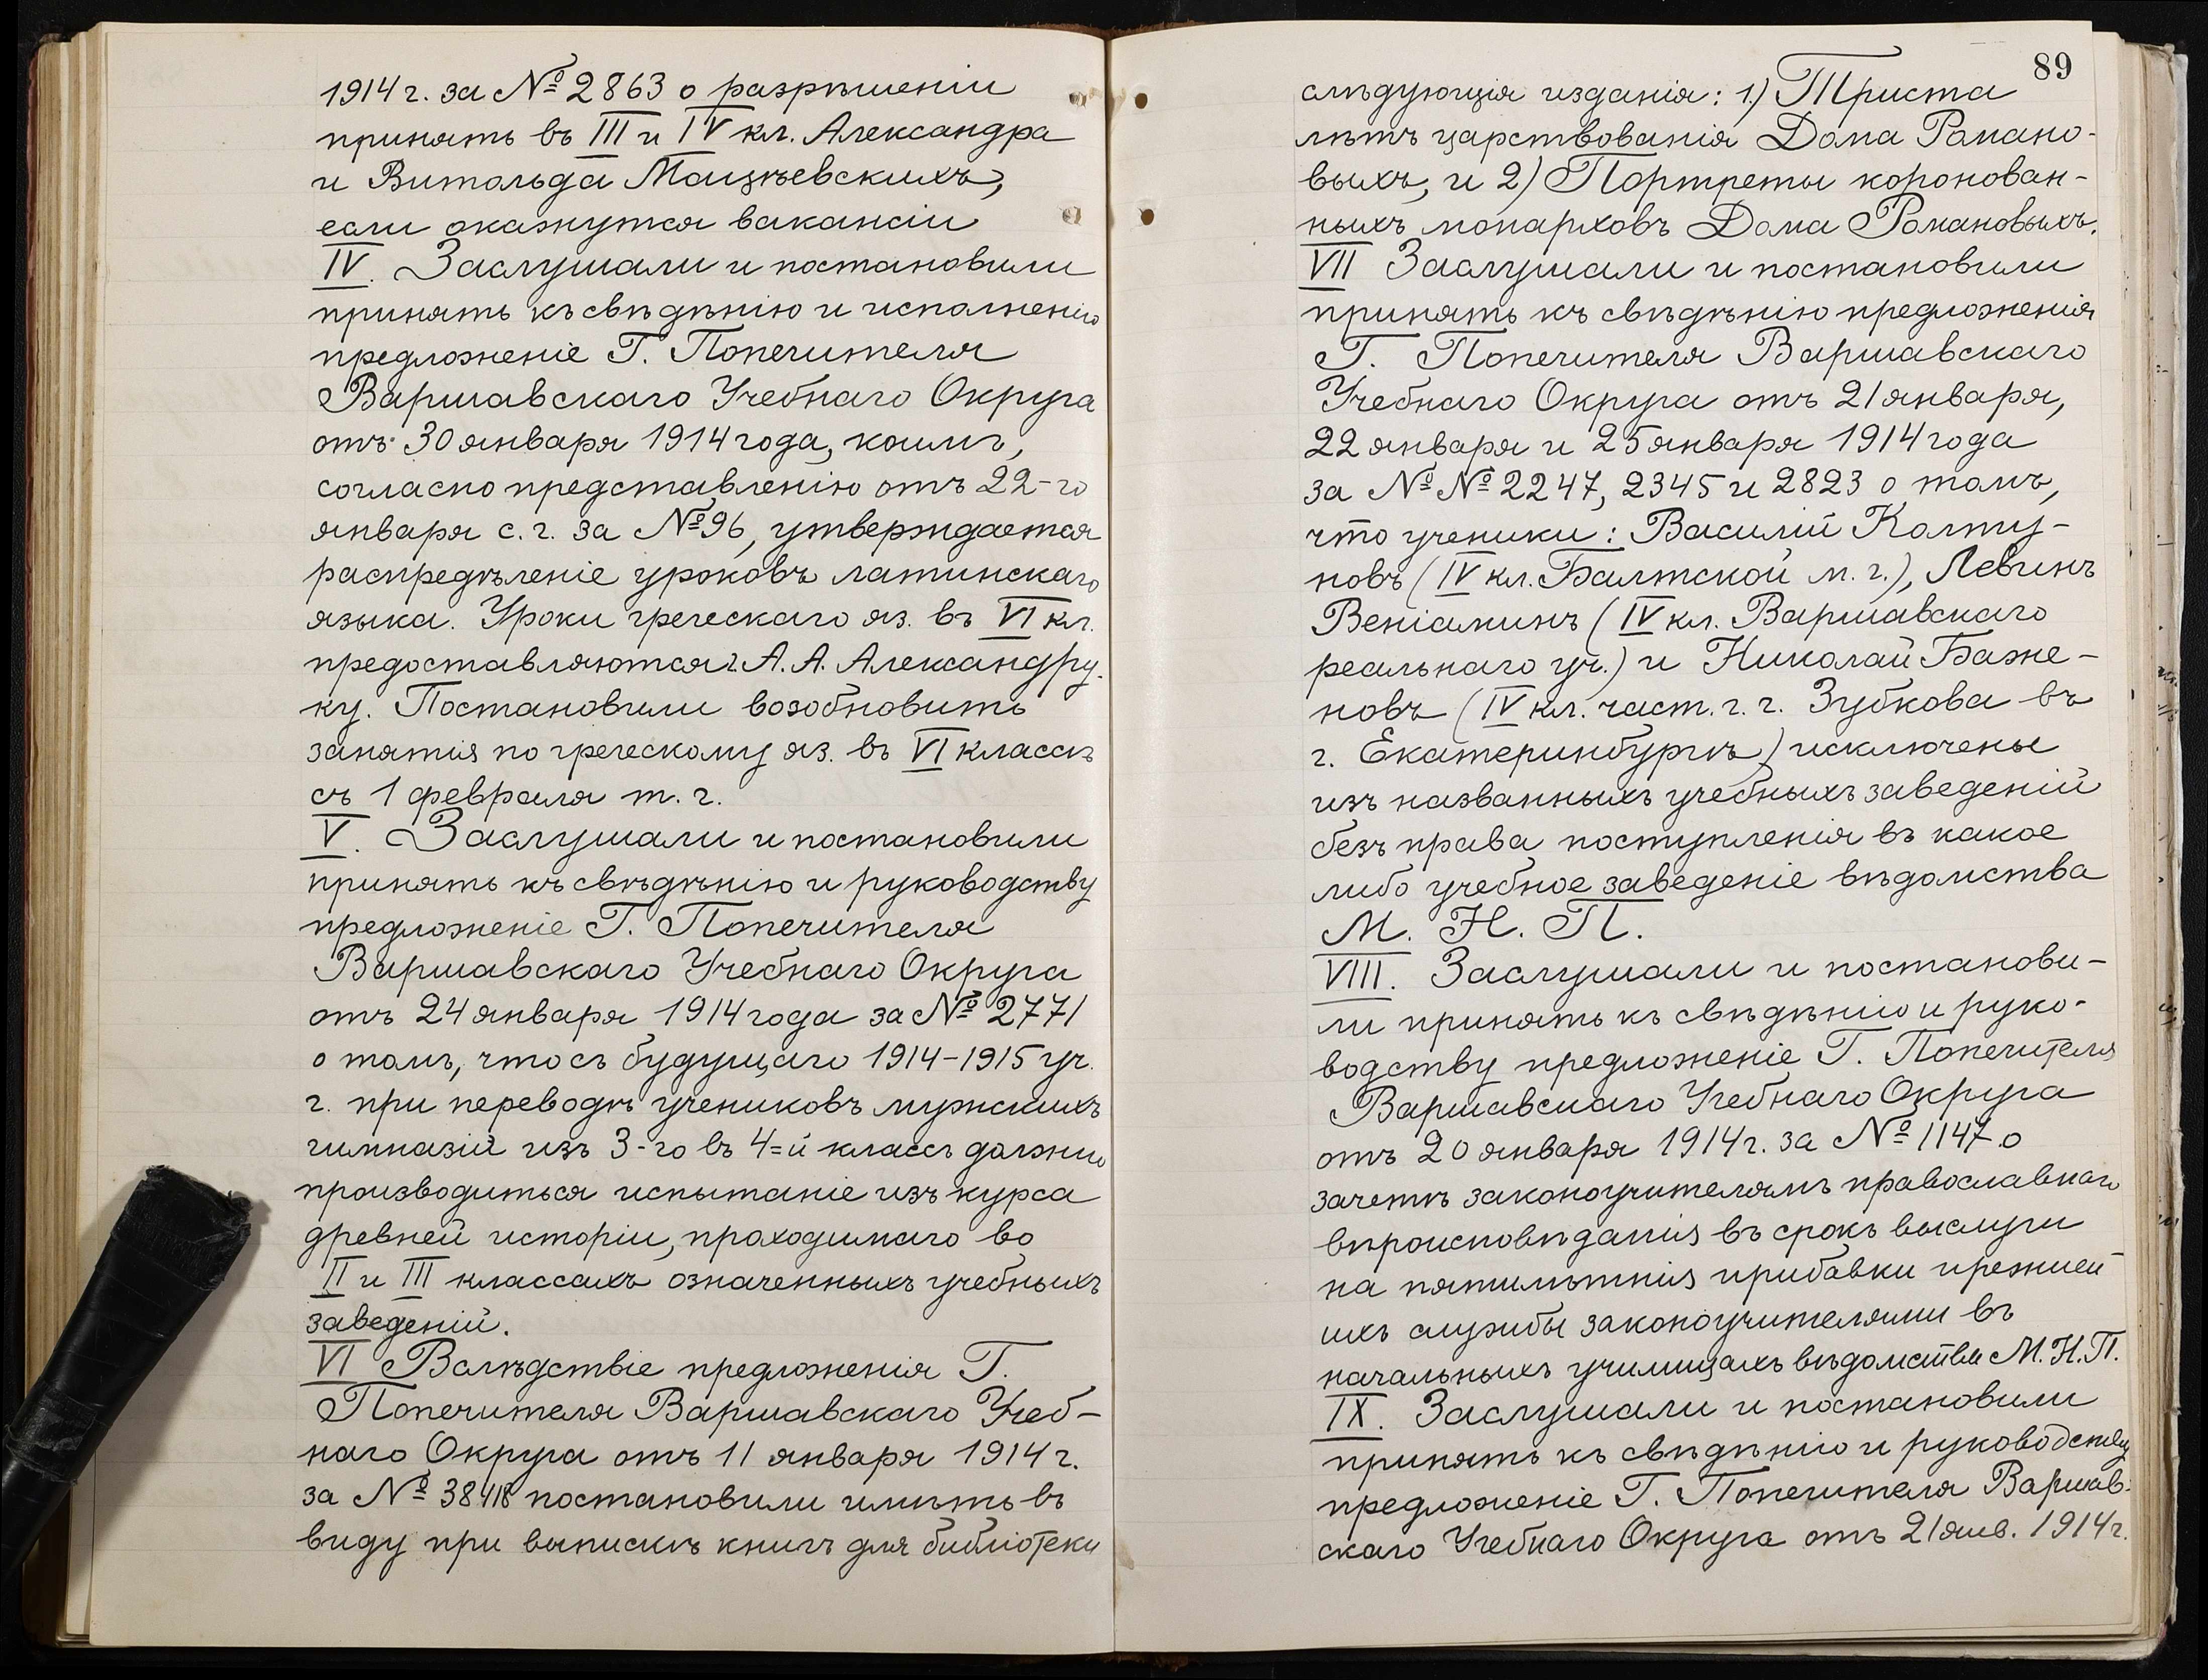 1914 г. за № 2863 о разрѣшеніи
принять въ III и IV кл. Александра
и Витольда Мацѣевскихъ,
если окажутся вакансіи
IV. Заслушали и постановили
принять къ свѣдѣнію и исполненію
предложеніе Г. Попечителя
Варшавскаго Учебнаго Округа
отъ 30 января 1914 года, коимъ,
согласно представленію отъ 22-го
января с. г. за № 96, утверждается
распредѣленіе уроковъ латинскаго
языка. Уроки греческаго яз. въ VI кл.
предоставляются г. А. А. Александру-
ку. Постановили возобновить
занятія по греческому яз. въ VI классѣ
съ 1 февраля т. г.
V. Заслушали и постановили
принять къ свѣдѣнію и руководству
предложеніе Г. Попечителя
Варшавскаго Учебнаго Округа
отъ 24 января 1914 года за № 2771
о томъ, что съ будущаго 1914-1915 уч.
г. при переводѣ учениковъ мужскихъ
гимназій изъ 3-го въ 4=й классъ должно
производиться испытаніе изъ курса
древней исторіи, проходимаго во
II и III классахъ означенныхъ учебныхъ
заведеній.
VI Вслѣдствіе предложенія Г.
Попечителя Варшавскаго Учеб-
наго Округа отъ 11 января 1914 г.
за № постановили имѣть въ
виду при выпискѣ книгъ для библіотеки
89
слѣдующія изданія: 1.) Триста
лѣтъ царствованія Дома Романо-
выхъ, и 2) Портреты коронован-
ныхъ монарховъ Дома Романовыхъ.
VII Заслушали и постановили
принять къ свѣдѣнію предложенія
Г. Попечителя Варшавскаго
Учебнаго Округа отъ 21 января,
22 января и 25 января 1914 года
за №№ 2247, 2345 и 2823 о томъ,
что ученики: Василій Колту-
новъ (IV кл. Балтской м. г.), Левинъ
Веніаминъ (IV кл. Варшавскаго
реальнаго уч.) и Николай Баже-
новъ (IV кл. част. г. г. Зубкова въ
г. Екатеринбургѣ) исключены
изъ названныхъ учебныхъ заведеній
безъ права поступленія въ какое
либо учебное заведеніе вѣдомства
М. Н. П.
VIII. Заслушали и постанови-
ли принять къ свѣдѣнію и руко-
водству предложеніе Г. Попечителя
Варшавскаго Учебнаго Округа
отъ 20 января 1914 г. за № 1147 о
зачетѣ законоучителямъ православнаго
вѣроисповѣданія въ срокъ выслуги
на пятилѣтнія прибавки прежней
ихъ службы законоучителями въ
начальныхъ училищахъ вѣдомства М. Н. П.
IX. Заслушали и постановили
принять къ свѣдѣнію и руководству
предложеніе Г. Попечителя Варшав-
скаго Учебнаго Округа отъ 21 янв. 1914 г.